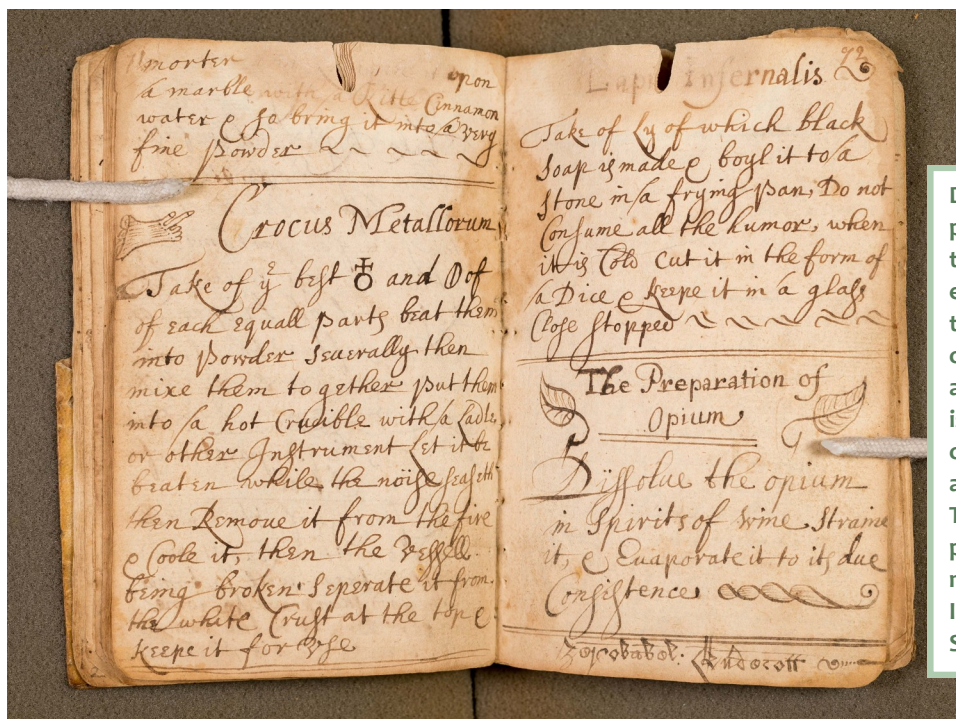 morter
upon
a marble with a Little Cinnamon
water & so bring it into a very
fine powder
Crocus Metallorum
Take of yͤ best ♁ and 🜕 of
of each equall parts beat them
into powder Seuerally then
mixe them together put them
into a hot Crucible with a Ladle
or other Instrument Let it be
beaten while the noise seaseth
then Remove it from the fire
& Coole it, then the Vessell
being broken Seperate it from
the white Crust at the top &
keepe it for Vse
2
72
Lapis Infernalis
Take of Ly of which black
Soap is made & boyl it to a
Stone in a frying pan, Do not
Consume all the humor, when
it is Cold cut it in the form of
a Dice & keepe it in a glass
Close stopped
The Preparation of
Opium
Dissolue the opium
in Spirits of wine Straine
it, & Euaporate it to its due
Consistence
Zerobabel: Endecott